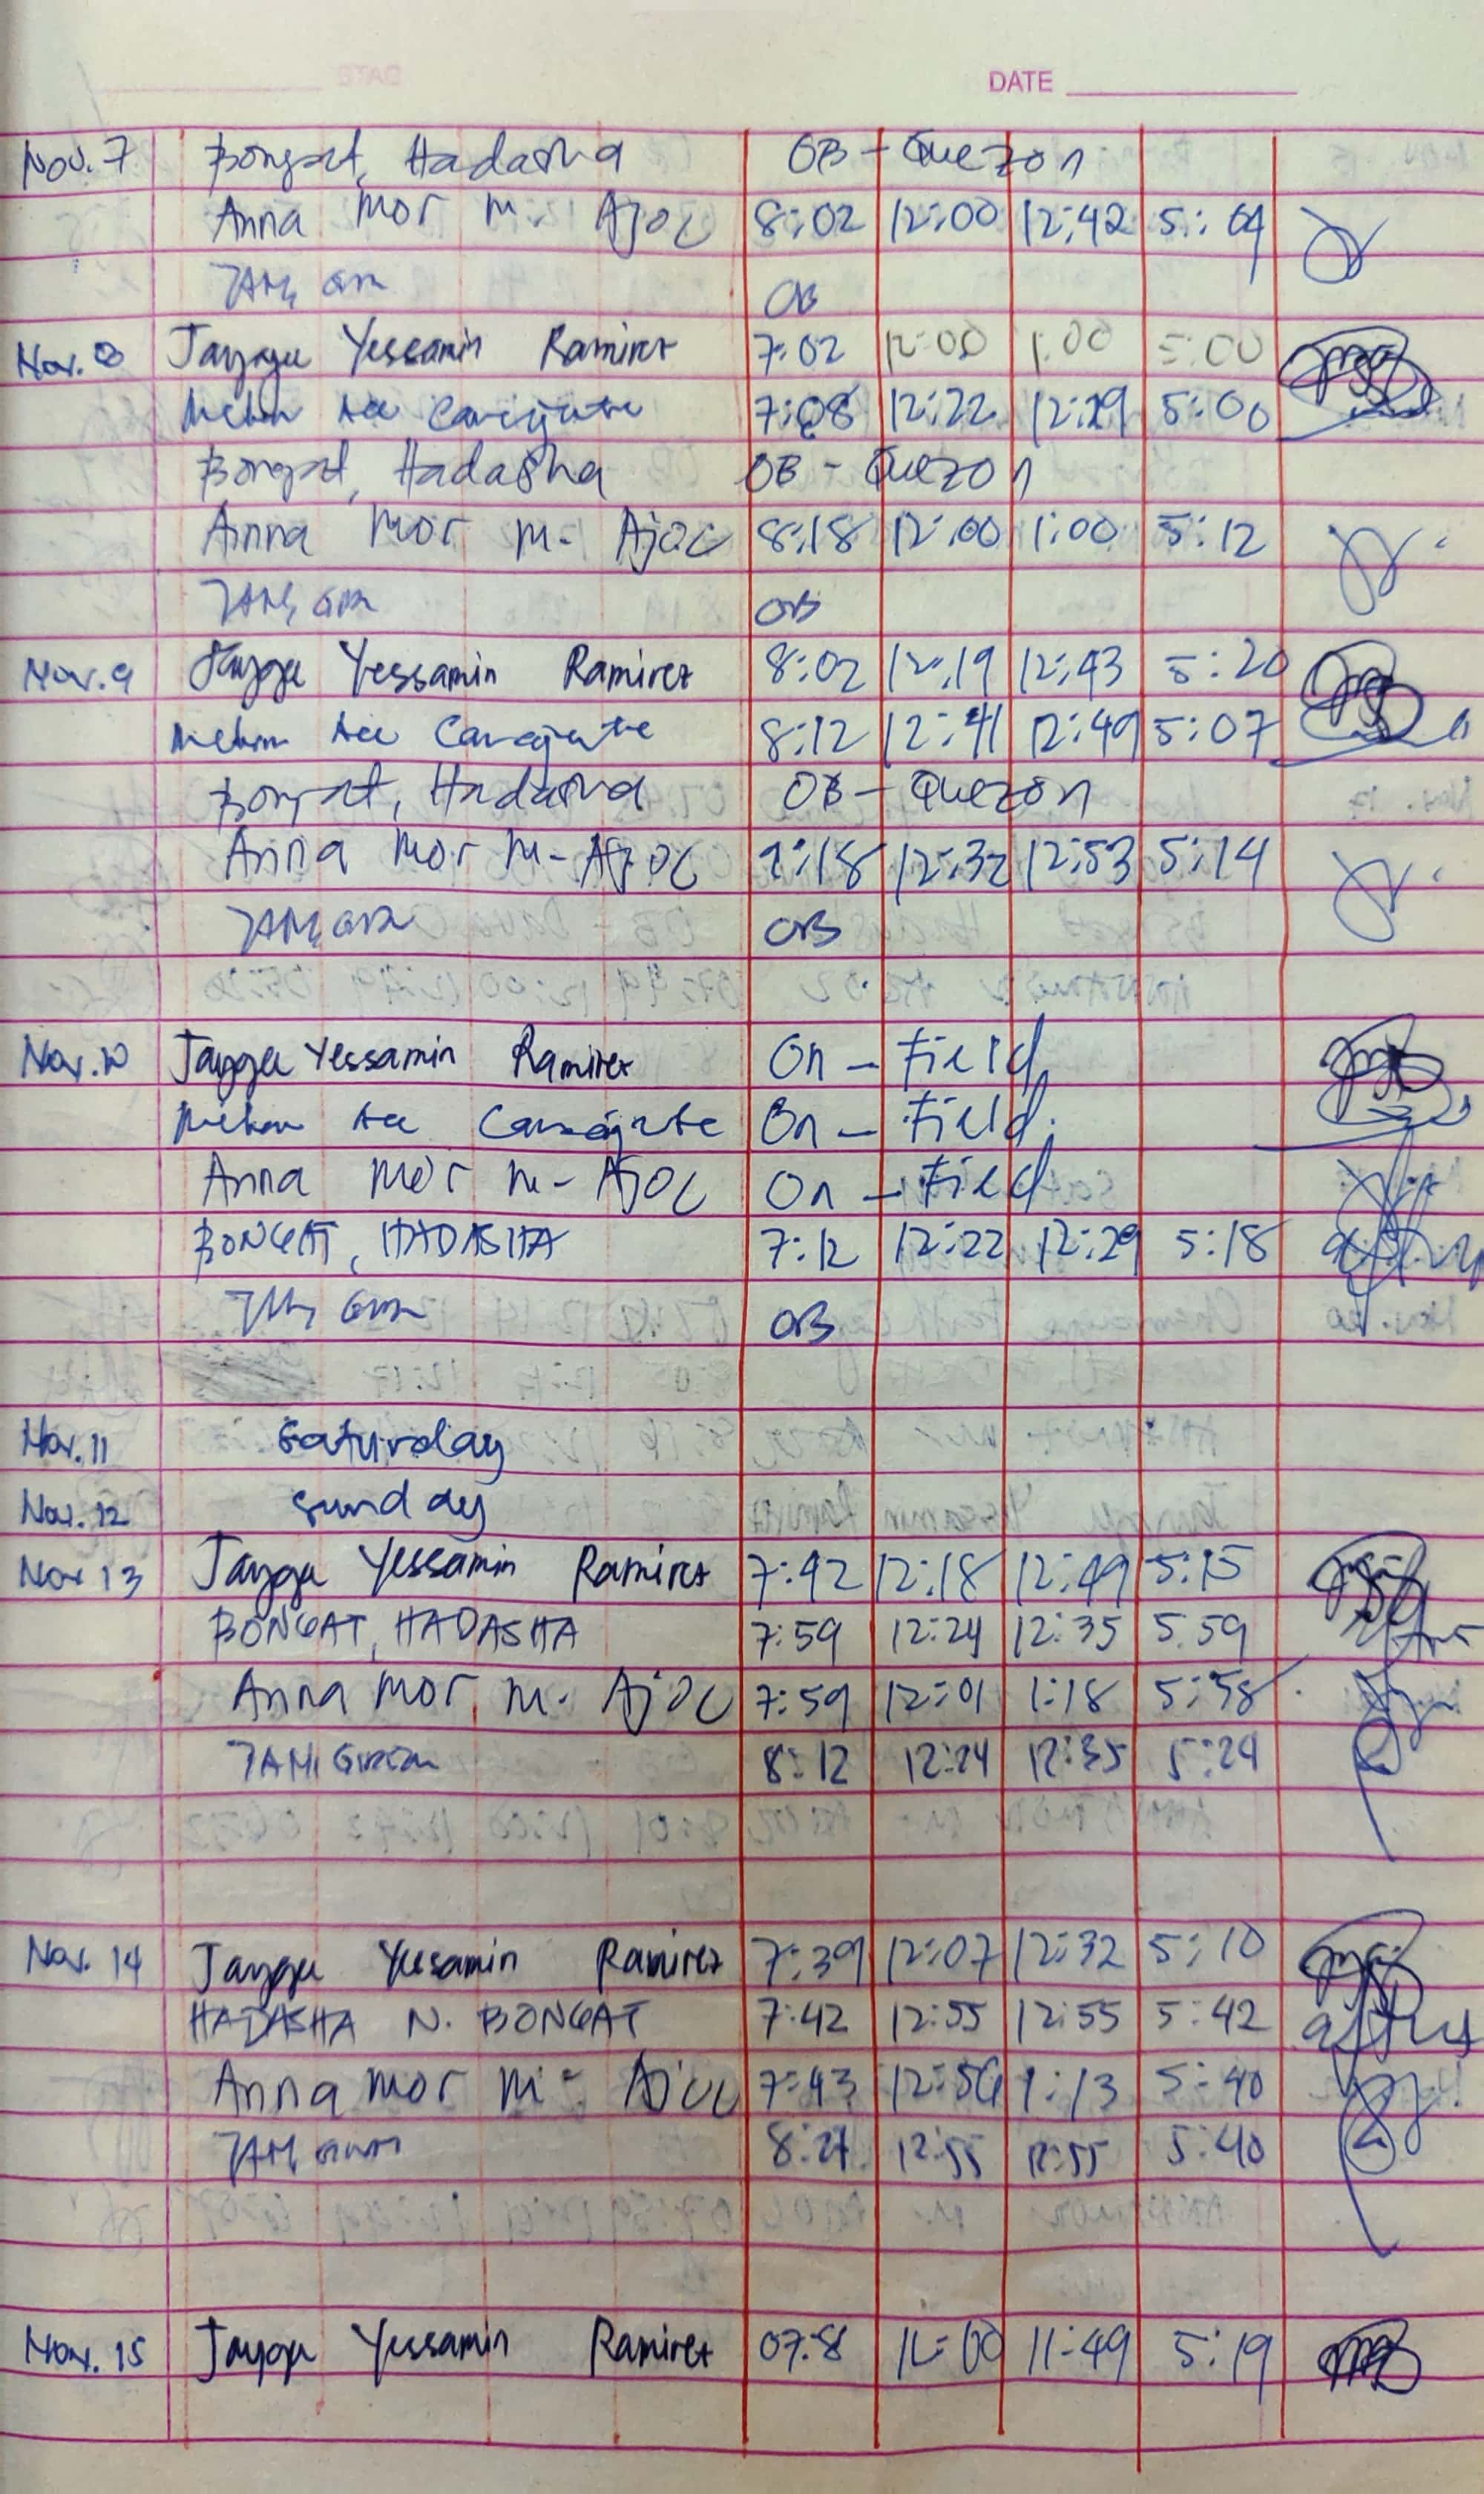 DATE
Nov. 7 Bongat, Hadasha OB - Quezon
Anna Mor M. Ajoc 8:02 12:00 12:42 5:04
OB
Nov. 8 Jaygee Yessamin Ramirez 7:02 12:00 1:00 5:00
7:08 12:22 12:29 5:00
Bongat, Hadasha OB - Quezon
Anna Mor M- Ajoc 8:18 12:00 1:00 5:12
OB
Nov. 9 Jaygee Yessamin Ramirez 8:02 12:19 12:43 5:20
8:12 12:41 12:49 5:07
Bongat, Hadasha OB - Quezon
Anna Mor M- Ajoc 12:32 12:53 5:14
OB
Nov. 10 Jaygee Yessamin Ramirez On - Field
On - Field.
Anna Mor M- Ajoc On - Field
BONGAT, HADASHA 7:12 12:22 12:29 5:18
OB
Nov. 11 Saturday
Nov. 12 Sunday
Nov 13 Jaygee Yessamin Ramirez 7:42 12:18 12:49 5:15
BONGAT, HADASHA 7:59 12:24 12:35 5:59
Anna Mor M. Ajoc 7:59 12:01 1:18 5:58
8:12 12:24 12:35 5:24
Nov. 14 Jaygee Yessamin Ramirez 7:39 12:07 12:32 5:10
HADASHA N. BONGAT 7:42 12:55 12:55 5:42
Anna Mor M- Ajoc 7:43 1:13 5:40
12:55 12:55 5:40
Nov. 15 Jaygee Yessamin Ramirez 11:49 5:19